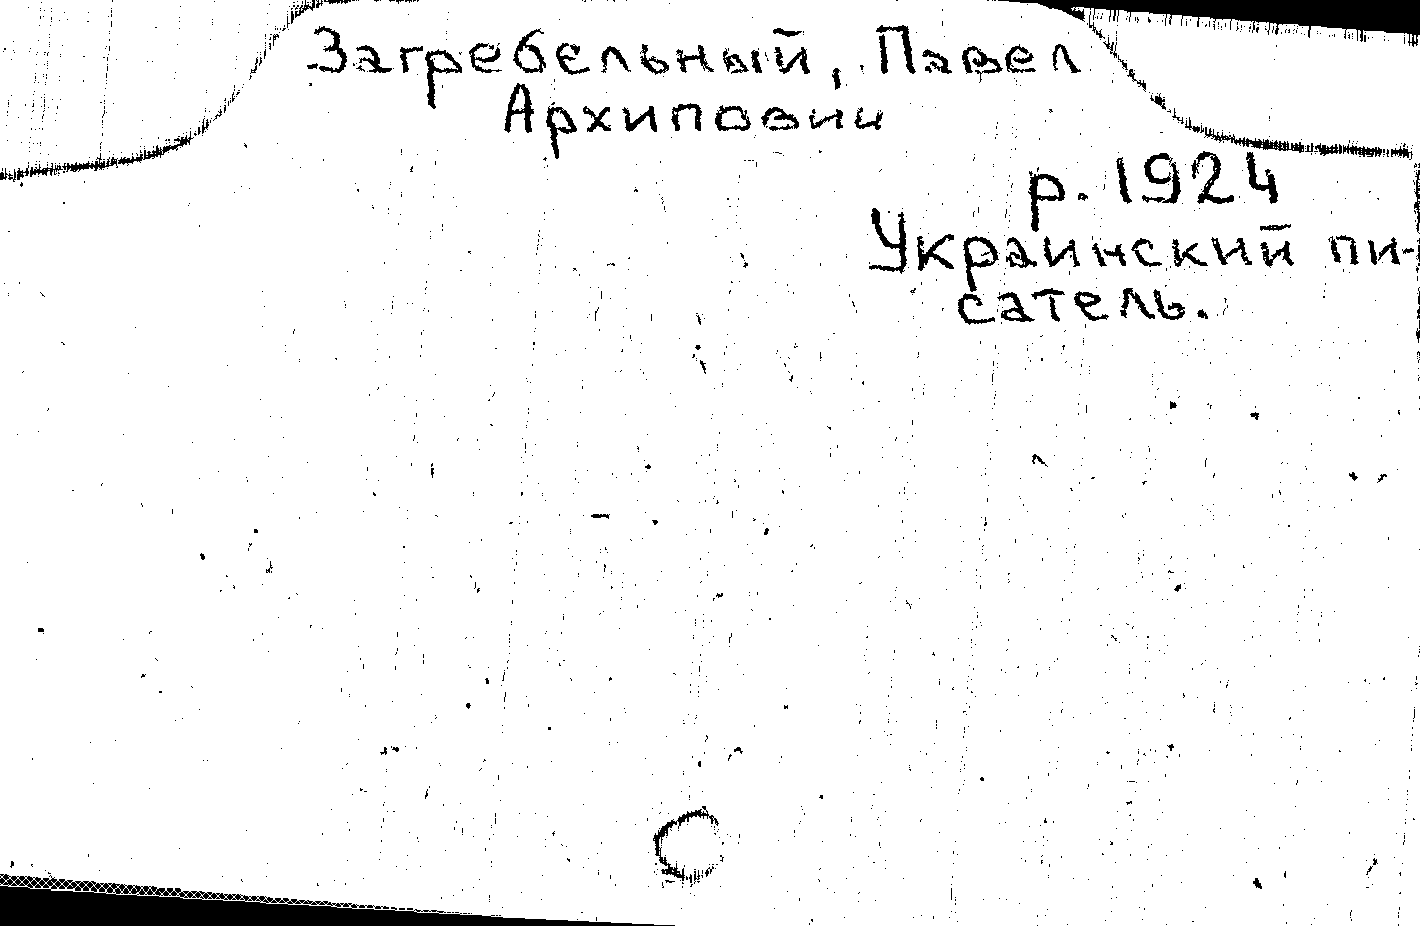 Загребельный, Павел
Архипович
р. 1924
Украинский пи-
сатель.